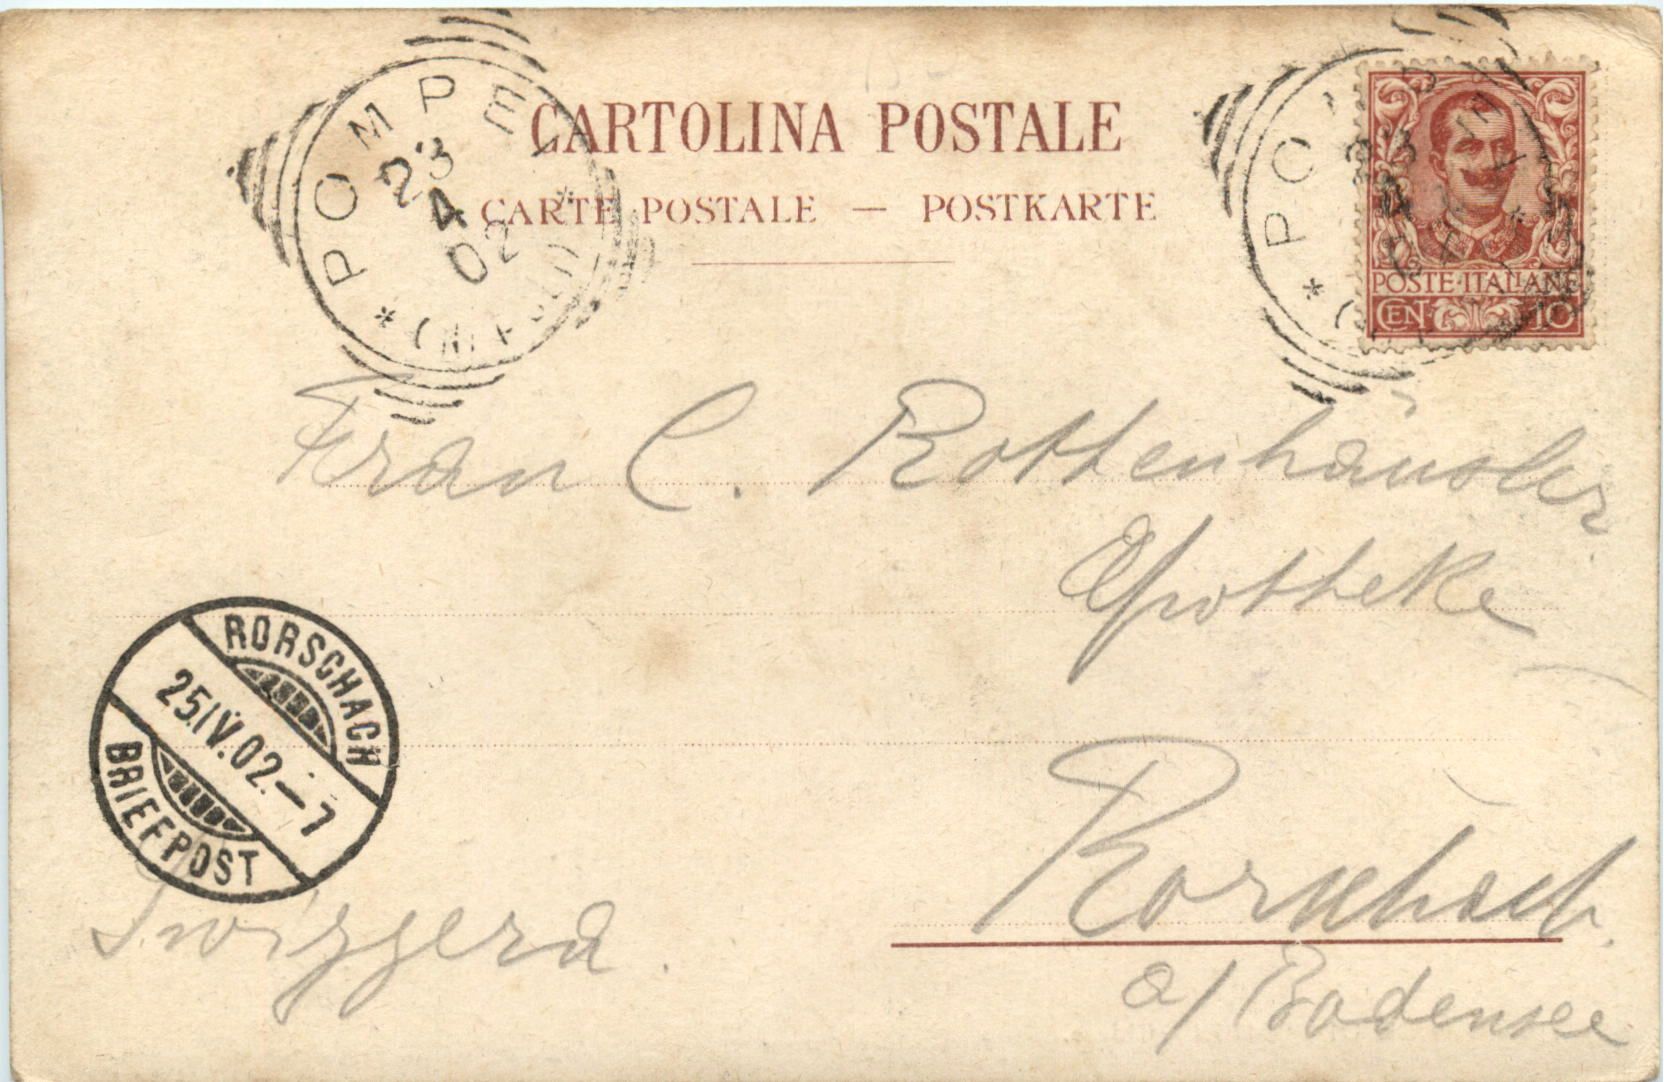 CARTOLINA POSTALE
CARTE POSTALE — POSTKARTE
POMPEI
23
4
02
*(NAPOLI)*
POSTE·ITALIANE
CEN. 10
Frau C. Rottenhäusler
Apotheke
Rorschach.
a/Bodensee
Svizzera.
RORSCHACH
25.IV.02.–7
BRIEFPOST